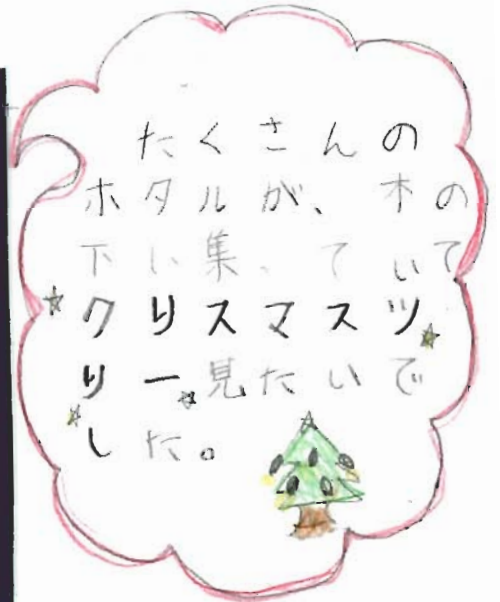 たくさんの
ホタルが、木の
下い集っていて
クリスマスツ
リー見たいで
した。